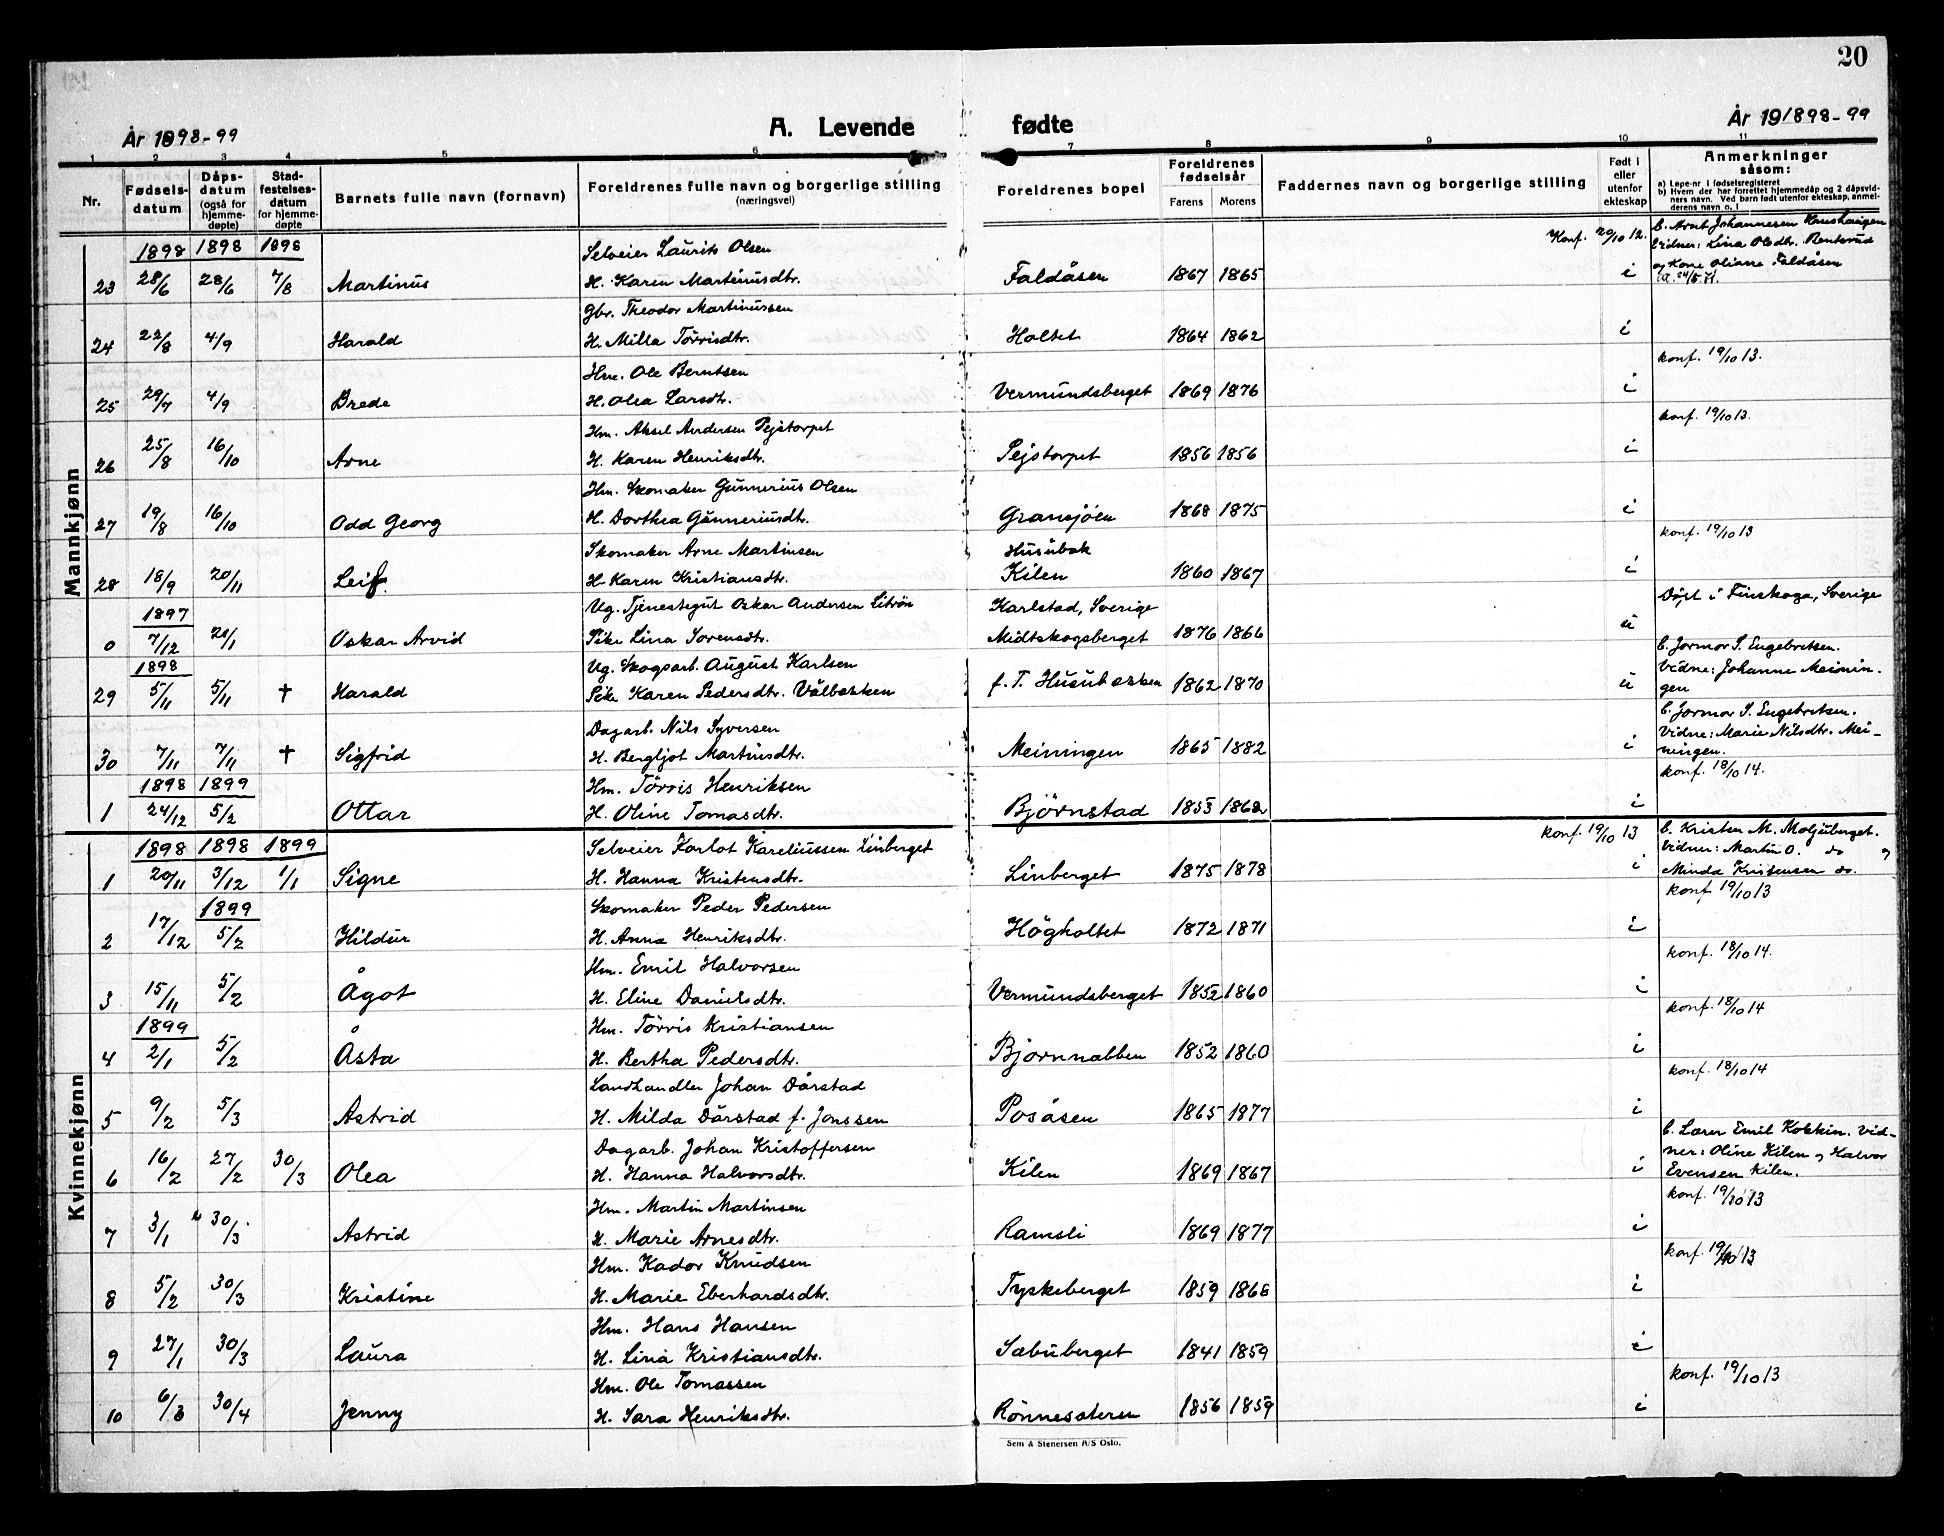 20
År 1898-99 A. Levende fødte År 191898-99
1 2 3 4 5 6 7 8 9 10 11
Nr. Fødsels-datum Dåps-datum (også for hjemme-døpte) Stad-festelses-datum for hjemme-døpte Barnets fulle navn (fornavn) Foreldrenes fulle navn og borgerlige stilling (næringsvei) Foreldrenes bopel Foreldrenes fødselsår Farens Morens Faddernes navn og borgerlige stilling Født i eller utenfor ekteskap Anmerkninger såsom:
a) Løpe-nr i fødselsregisteret
b) Hvem der har forrettet hjemmedåp og 2 dåpsvidners navn. Ved barn født utenfor ekteskap, anmelderens navn o. l
Mannkjønn
1898 1898 1898 Selveier Laurits Olsen Konf. 20/10 12. C. Arnt Johannesen Kneshaugen
Vidner: Lina Olsdtr. Bentsrud
og Kone Oliane Faldåsen
23 28/6 28/6 7/8 Martinus H. Karen Martinusdtr. Faldåsen 1867 1865 i
Gbr. Theodor Martinussen
24 22/8 4/9 Harald H. Milla Törrisdtr. Holtet 1864 1862 i
Hm. Ole Berntsen konf. 19/10 13.
25 29/7 4/9 Brede H. Olea Larsdtr. Vermundsberget 1869 1876 i
Hm. Aksel Andersen Pejstorpet konf. 19/10 13.
26 25/8 16/10 Arne H. Karen Henriksdtr. Pejstorpet 1856 1856 i
Hm. Skomaker Gunnerius Olsen
27 19/8 16/10 Odd Georg H. Dorthea Gunneriusdtr. Gransjöen 1868 1875 i
Skomaker Arne Martinsen Husubak konf. 19/10 13
28 18/9 20/11 Leif. H. Karen Kristiansdtr. Kilen 1860 1867 i
1897 Ug. Tjenestegut Oskar Andersen Litrön Karlstad, Sverige Döpt i Finskoga, Sverige
0 7/12 20/1 Oskar Arvid Pike Lina Sorensdtr. Midtskogsberget 1876 1866 u
1898 Ug. Skogsarb. August Karlsen C. Jormor S. Engebretsen.
Vidne: Johanne Meinin-
gen
29 5/11 5/11 † Harald Pike Karen Pedersdtr. Vålbekken f. T. Husubekken 1862 1870 u
Dagarb. Nils Syversen C. Jormor S. Engebretsen.
Vidne: Marie Nilsdtr. Mei-
ningen.
30 7/11 7/11 † Sigfrid H. Bergljot Martinsdtr. Meiningen 1865 1882 i
1898 1899 Hm. Törris Henriksen konf. 18/10 14.
1 24/12 5/2 Ottar H. Oline Tomasdtr. Björnstad 1853 1862 i
Kvinnekjønn
1898 1898 1899 Selveier Karlot Kareliussen Linberget konf. 19/10 13 C. Kristen M. Moljuberget.
Vidner: Martin O. do og
Minda Kristensen do.
1 20/11 3/12 1/1 Signe H. Hanna Kristensdtr. Linberget 1875 1878 i
1899 Skomaker Peder Pedersen konf. 19/10 13
2 17/12 5/2 Hildur H. Anna Henriksdtr. Högholtet 1872 1871 i
Hm. Emil Halvorsen konf. 18/10 14.
3 15/11 5/2 Ågot H. Eline Danielsdtr. Vermundsberget 1852 1860 i
1899 Hm. Törris Kristiansen konf. 18/10 14
4 2/1 5/2 Åsta H. Bertha Pedersdtr. Björnnabben 1852 1860 i
Landhandler Johan Dårstad konf. 18/10 14
5 9/2 5/3 Astrid H. Milda Dårstad f. Jonssen Posåsen 1865 1877 i
Dagarb. Johan Kristoffersen C. Lærer Emil Kolkin. Vid-
ner: Oline Kilen og Halvor
Evensen Kilen.
6 16/2 27/2 30/3 Olea H. Hanna Halvorsdtr. Kilen 1869 1867 i
Hm. Martin Martinsen konf. 19/10 13
7 3/1 30/3 Astrid H. Marie Arnesdtr. Ramsli 1869 1877 i
Hm. Kador Knudsen konf. 19/10 13
8 5/2 30/3 Kristine H. Marie Eberhardsdtr. Tyskeberget 1859 1868 i
Hm. Hans Hansen
9 27/1 30/3 Laura H. Lina Kristiansdtr. Sæbuberget 1841 1859 i
Hm. Ole Tomassen konf. 19/10 13
10 6/3 30/4 Jenny H. Sara Henriksdtr. Rönnesæteren 1856 1859 i
Sem & Stenersen A/S Oslo.